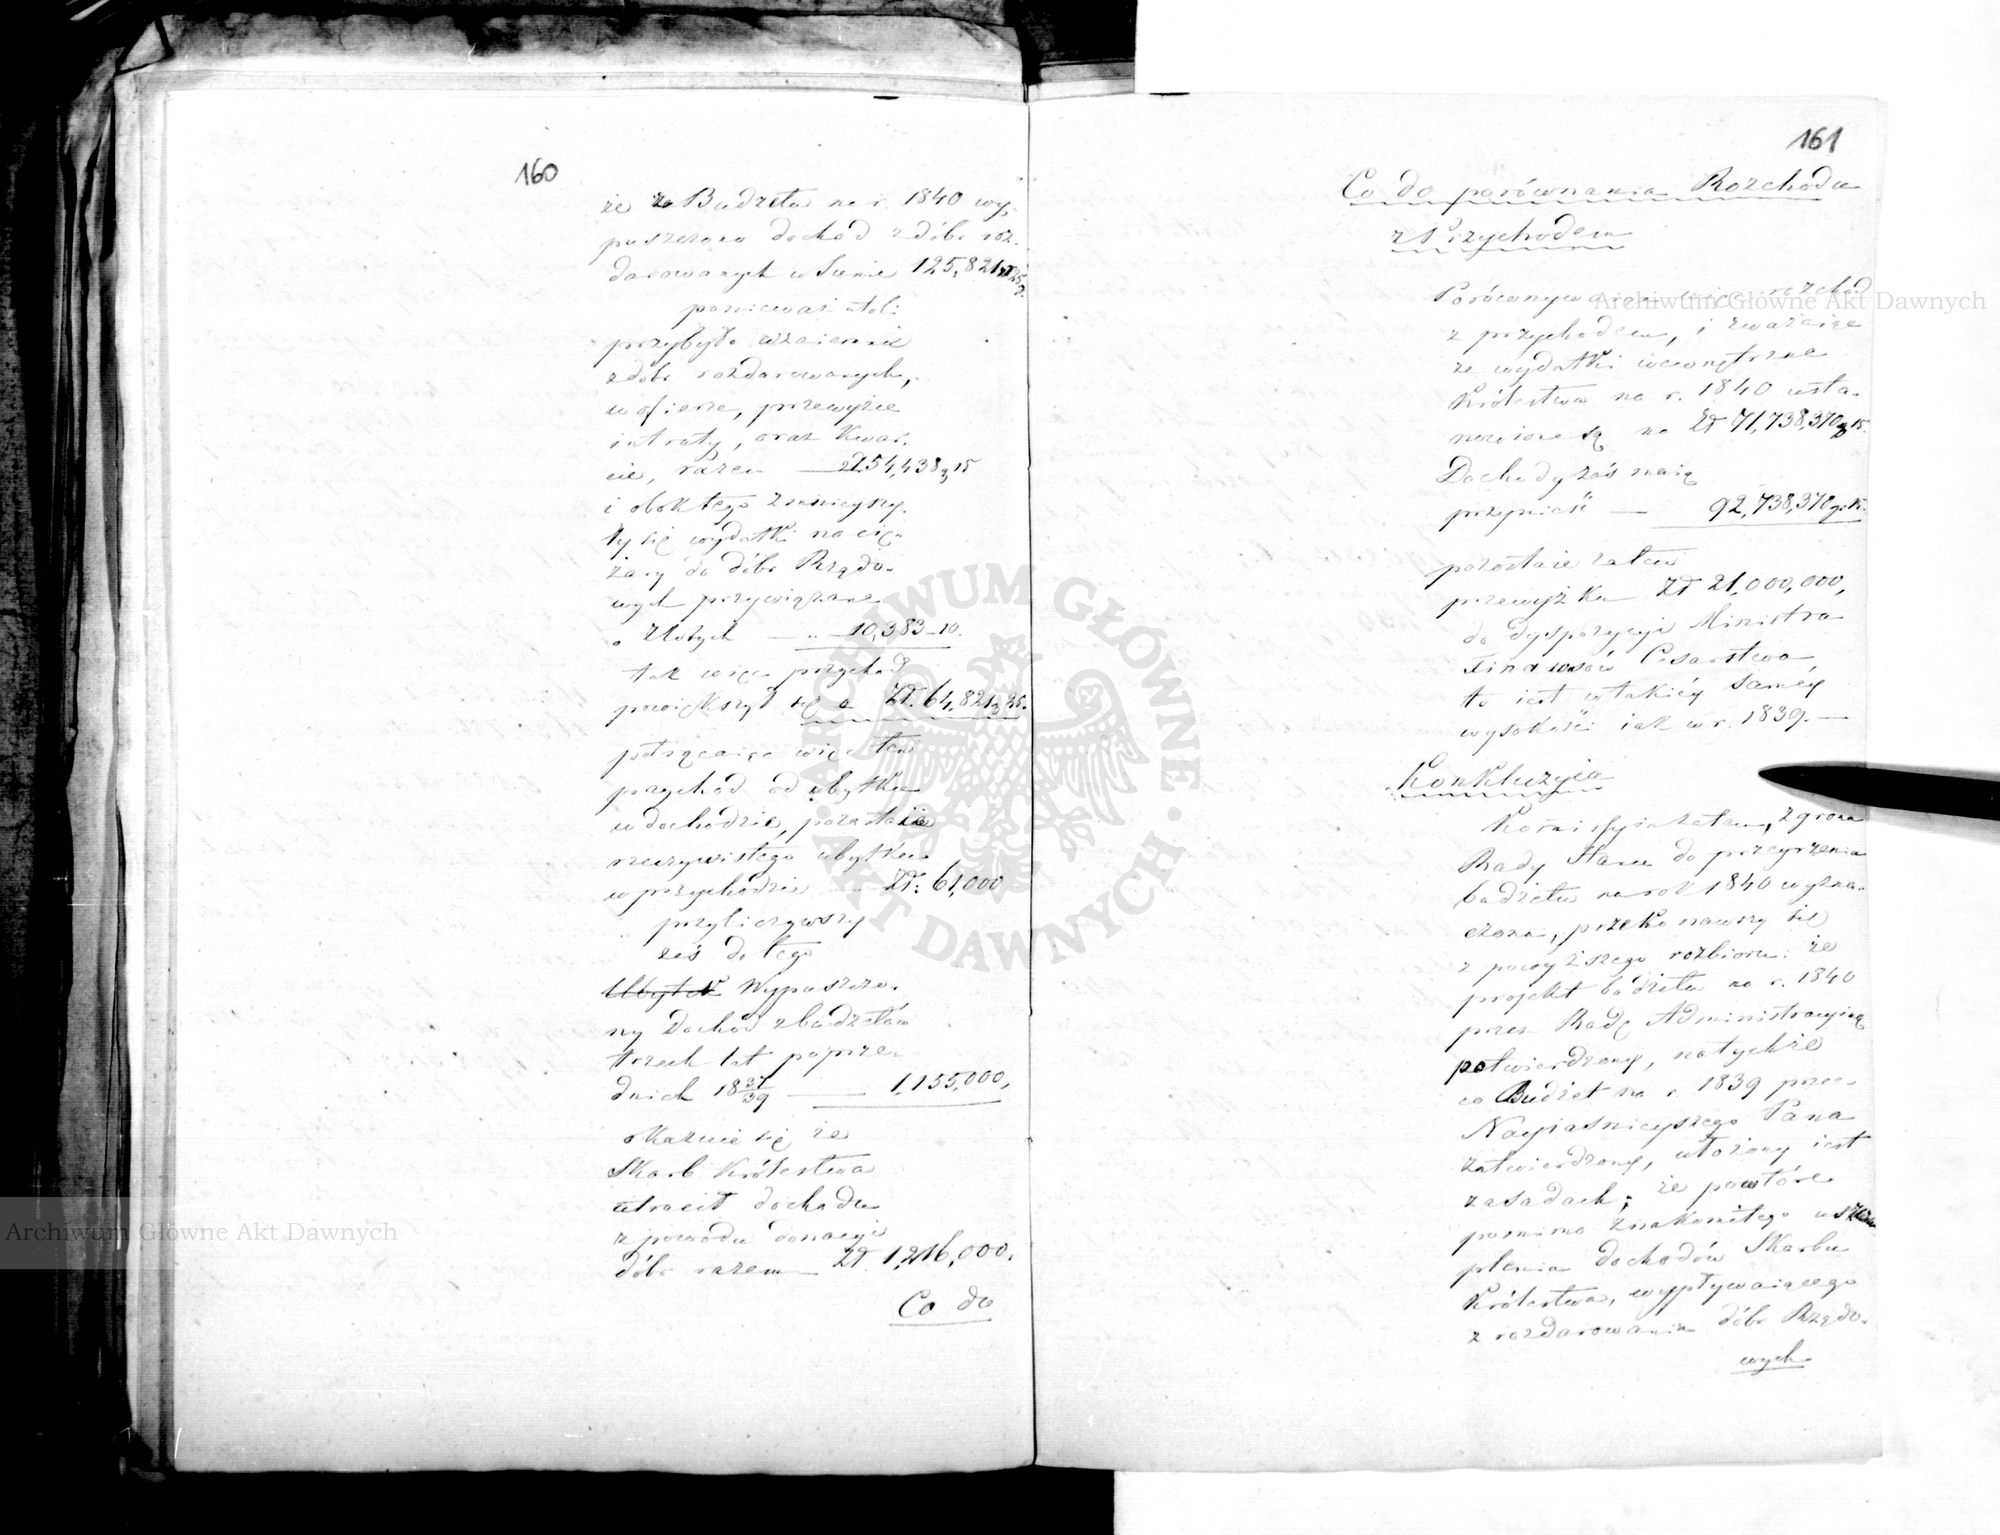 160
że za Budżetu na r. 1840 wy-
puszczono dochod z dóbr roz-
darowanych w Summie 125,821 zł 25 g.
ponieważ atoli
przybyło wzaiemnie
z dóbr rozdarowanych,
w ofierze, przewyżce
intraty, oraz kwar-
cie, razem — 54,438 g 15
i obok tego zmnieyszy-
ły się wydatki na cię-
żary do dóbr Rządo-
wych przywiązane
o Złotych — „ — 10,383 - 10.
tak więc przychod
powiększył się o Zł. 64,821 g 25.
potrącaiąc więc ten
przychód od ubytku
w dochodzie, pozostaie
rzeczywistego ubytku
w przychodzie — Zł. 61,000
przyliczywszy
zaś do tego
Ubytek Wypuszczo-
ny Dochód z budżetów
trzech lat poprze-
dnich 18 37/39 — 1,155,000,
okazuie się że
Skarb Królestwa
utracił dochodu
z powodu donacyi
dóbr razem — Zł. 1,216,000.
Co do
161
Co do porównania Rozchodu
z Przychodem
Porównywaiąc więc rozchod
z przychodem, i zważaiąc
że wydatki wewnętrzne
Królestwa na r. 1840 usta-
nowione są na Zł 71,738,370 g 15.
Dochody zaś maią
przynieść — 92,738,370 g. 15.
pozostaie zatem
przewyżka Zł 21,000,000,
do dyspozycyi Ministra
Finansów Cesarstwa,
to iest w takiéy samey
wysokości iak w r. 1839. —
Konkluzyia
Kommissyia zatem, z grona
Rady Stanu do przeyrzenia
budżetu na rok 1840 wyzna-
czona, przekonawszy się
z powyższego rozbioru: że
projekt budżetu na r. 1840
przez Radę Administracyiną
potwierdzony, na tychże
co Budżet na r. 1839 przez
Nayiaśnieyszego Pana
zatwierdzony, ułożony iest
zasadach; że powtóre
pomimo znakomitego uszczu-
plenia dochodów Skarbu
Królestwa, wypływaiącego
z rozdarowania dóbr Rządo-
wych
Archiwum Główne Akt Dawnych
Archiwum Główne Akt Dawnych
ARCHIWUM GŁÓWNE · AKT DAWNYCH ·